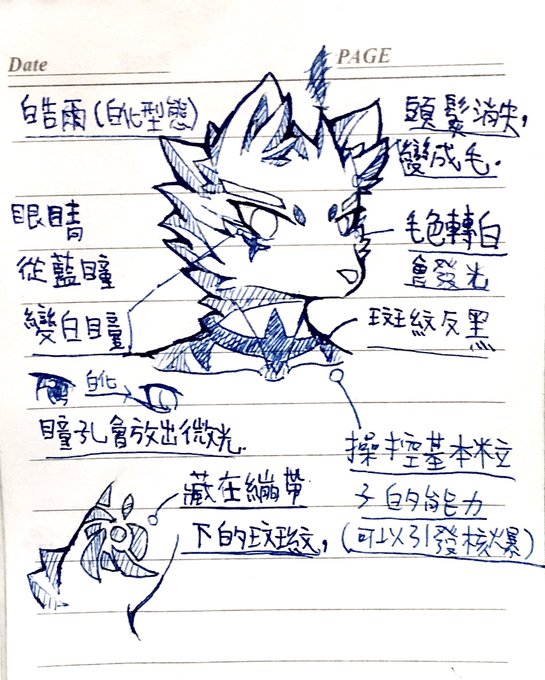 Date
PAGE
白皓雨(白化型態)
頭髮消失,
變成毛.
眼睛
從藍瞳
變白瞳
毛色轉白
會發光
斑紋反黑
白化
瞳孔會放出微光.
操控基本粒
子的能力
(可以引發核爆)
藏在繃帶
下的斑紋,